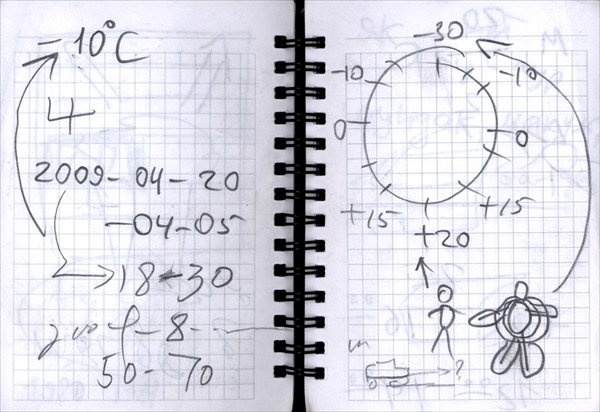 -10°C
4
2009-04-20
-04-05
18-30
-8-
50-70
-30
-10
-10
0
0
+15
+15
+20
?